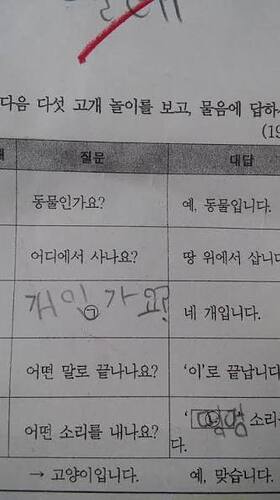 다음 다섯 고개 놀이를 보고, 물음에 답하
(19
질문 대답
동물인가요? 예, 동물입니다.
어디에서 사나요? 땅 위에서 삽니다
개인가요? ㉠ 네 개입니다.
어떤 말로 끝나나요? '이'로 끝납니다
어떤 소리를 내나요? ' 소리
다.
→ 고양이입니다. 예, 맞습니다.